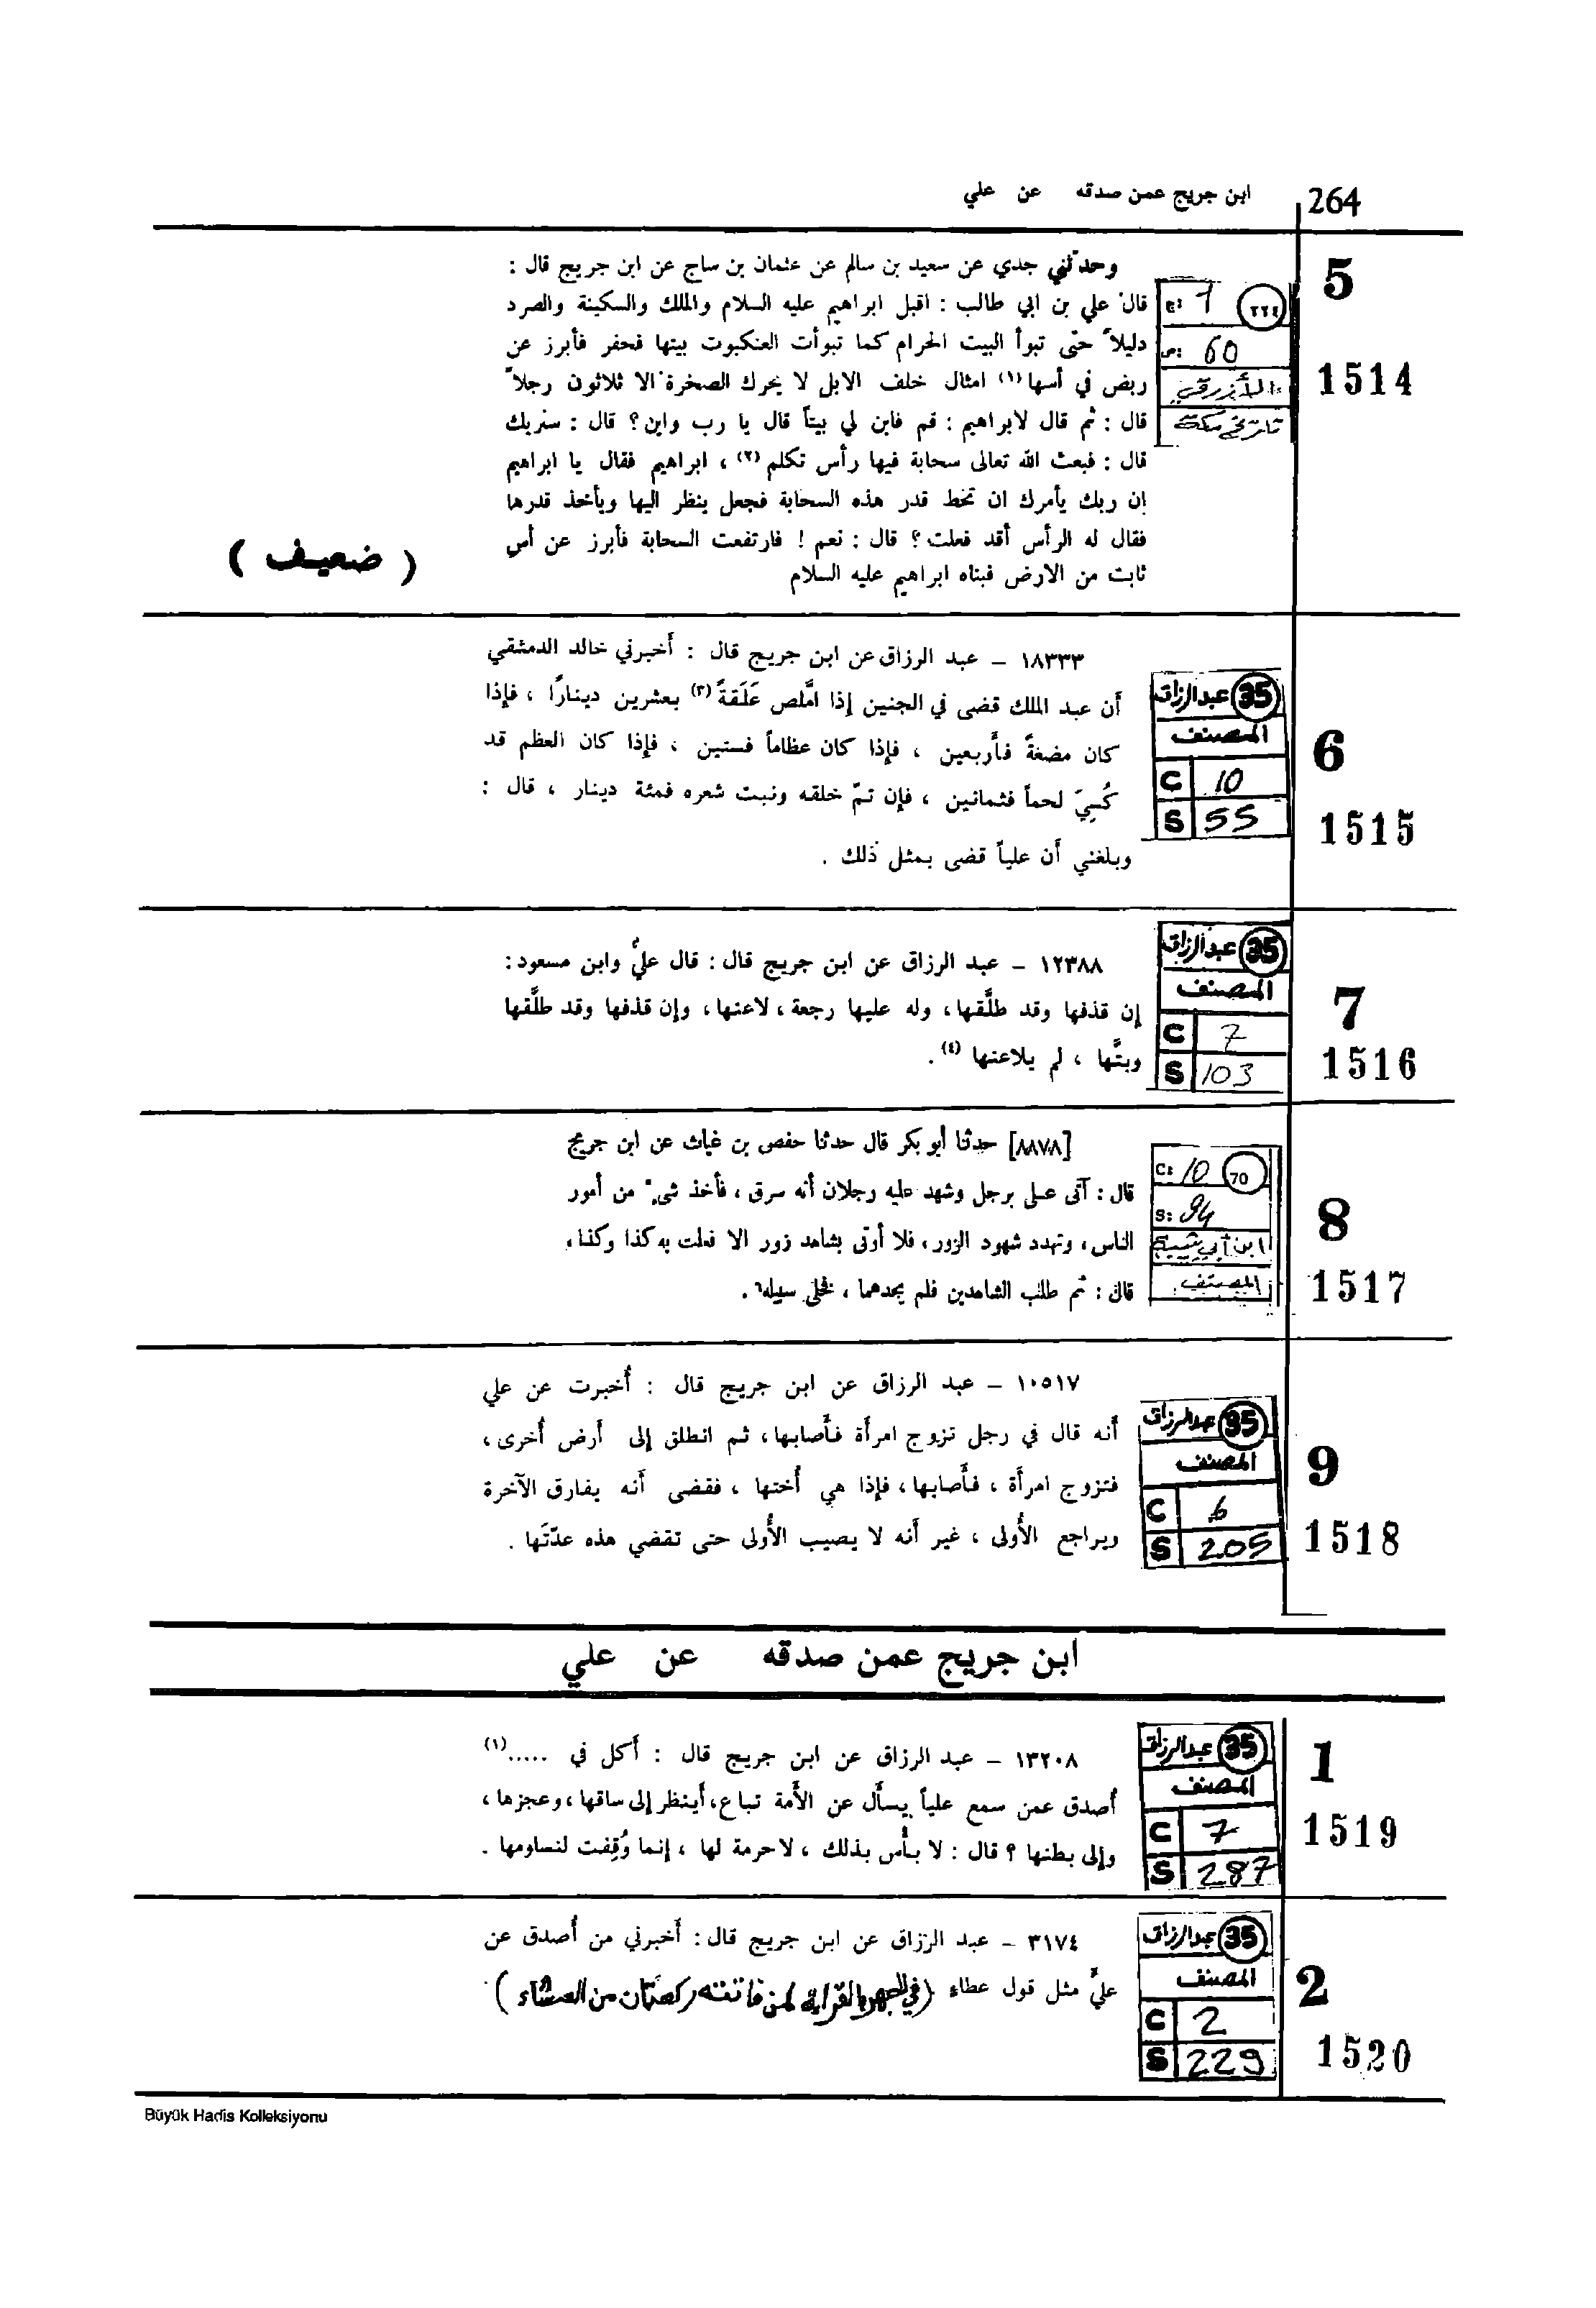 264
ابن جريج عمن صدقه عن علي
5
1514
ج: 1 ٢٢٤
ص: 60
الأزرقي
تاريخ مكة
وحدثني جدي عن سعيد بن سالم عن عثمان بن ساج عن ابن جريج قال :
قال علي بن ابي طالب : اقبل ابراهيم عليه السلام والملك والسكينة والصرد
دليلاً حتى تبوأ البيت الحرام كما تبوأت العنكبوت بيتها فحفر فأبرز عن
ربض في أسها (١) امثال خلف الابل لا يحرك الصخرة الا ثلاثون رجلاً
قال : ثم قال لابراهيم : قم فابن لي بيتاً قال يا رب واين ؟ قال : سنريك
قال : فبعث الله تعالى سحابة فيها رأس تكلم (٢) ، ابراهيم فقال يا ابراهيم
إن ربك يأمرك ان تخط قدر هذه السحابة فجعل ينظر اليها ويأخذ قدرها
فقال له الرأس أقد فعلت ؟ قال : نعم ! فارتفعت السحابة فأبرز عن أس
ثابت من الارض فبناه ابراهيم عليه السلام
( ضعيف )
6
1515
35 عبدالرزاق
المصنف
C 10
S 55
١٨٣٣٣ – عبد الرزاق عن ابن جريج قال : أَخبرني خالد الدمشقي
أَن عبد الملك قضى في الجنين إذا امَّلص عَلَقةً (٣) بعشرين دينارًا ، فإذا
كان مضغةً فأَربعين ، فإذا كان عظاماً فستين ، فإذا كان العظم قد
كُسِيَ لحماً فثمانين ، فإن تمّ خلقه ونبت شعره فمئة دينار ، قال :
وبلغني أَن علياً قضى بمثل ذلك .
7
1516
35 عبدالرزاق
المصنف
C 7
S 103
١٢٣٨٨ – عبد الرزاق عن ابن جريج قال : قال عليٌ وابن مسعود :
إن قذفها وقد طلَّقها ، وله عليها رجعة ، لاعنها ، وإن قذفها وقد طلَّقها
وبتَّها ، لم يلاعنها (٤) .
8
1517
C: 10 70
S: 94
ابن أبي شيبة
المصنف
[٨٨٧٨] حدثنا أبو بكر قال حدثنا حفص بن غياث عن ابن جريج
قال : آتى على برجل وشهد عليه رجلان أنه سرق ، فأخذ شىء من أمور
الناس ، وتهدد شهود الزور ، فلا أوتى بشاهد زور الا فعلت به كذا وكذا ،
قال : ثم طلب الشاهدين فلم يجدهما ، فخلى سبيله .
9
1518
35 عبدالرزاق
المصنف
C 6
S 205
١٠٥١٧ – عبد الرزاق عن ابن جريج قال : أُخبرت عن علي
أَنه قال في رجل تزوج امرأَة فأَصابها ، ثم انطلق إلى أَرض أُخرى ،
فتزوج امرأَة ، فأَصابها ، فإذا هي أُختها ، فقضى أَنه يفارق الآخرة
ويراجع الأُولى ، غير أَنه لا يصيب الأُولى حتى تقضي هذه عدّتَها .
ابن جريج عمن صدقه عن علي
1
1519
35 عبدالرزاق
المصنف
C 7
S 287
١٣٢٠٨ – عبد الرزاق عن ابن جريج قال : أَكل في ..... (١)
أَصدق عمن سمع علياً يسأَل عن الأَمة تباع ، أَينظر إلى ساقها ، وعجزها ،
وإلى بطنها ؟ قال : لا بأْس بذلك ، لا حرمة لها ، إنما وُقِفت لنساومها .
2
1520
35 عبدالرزاق
المصنف
C 2
S 229
٣١٧٤ – عبد الرزاق عن ابن جريج قال : أَخبرني من أَصدق عن
عليٍّ مثل قول عطاء (في الجهر بالقراءة لمن فاتته ركعتان من العشاء)
Büyük Hadis Kolleksiyonu